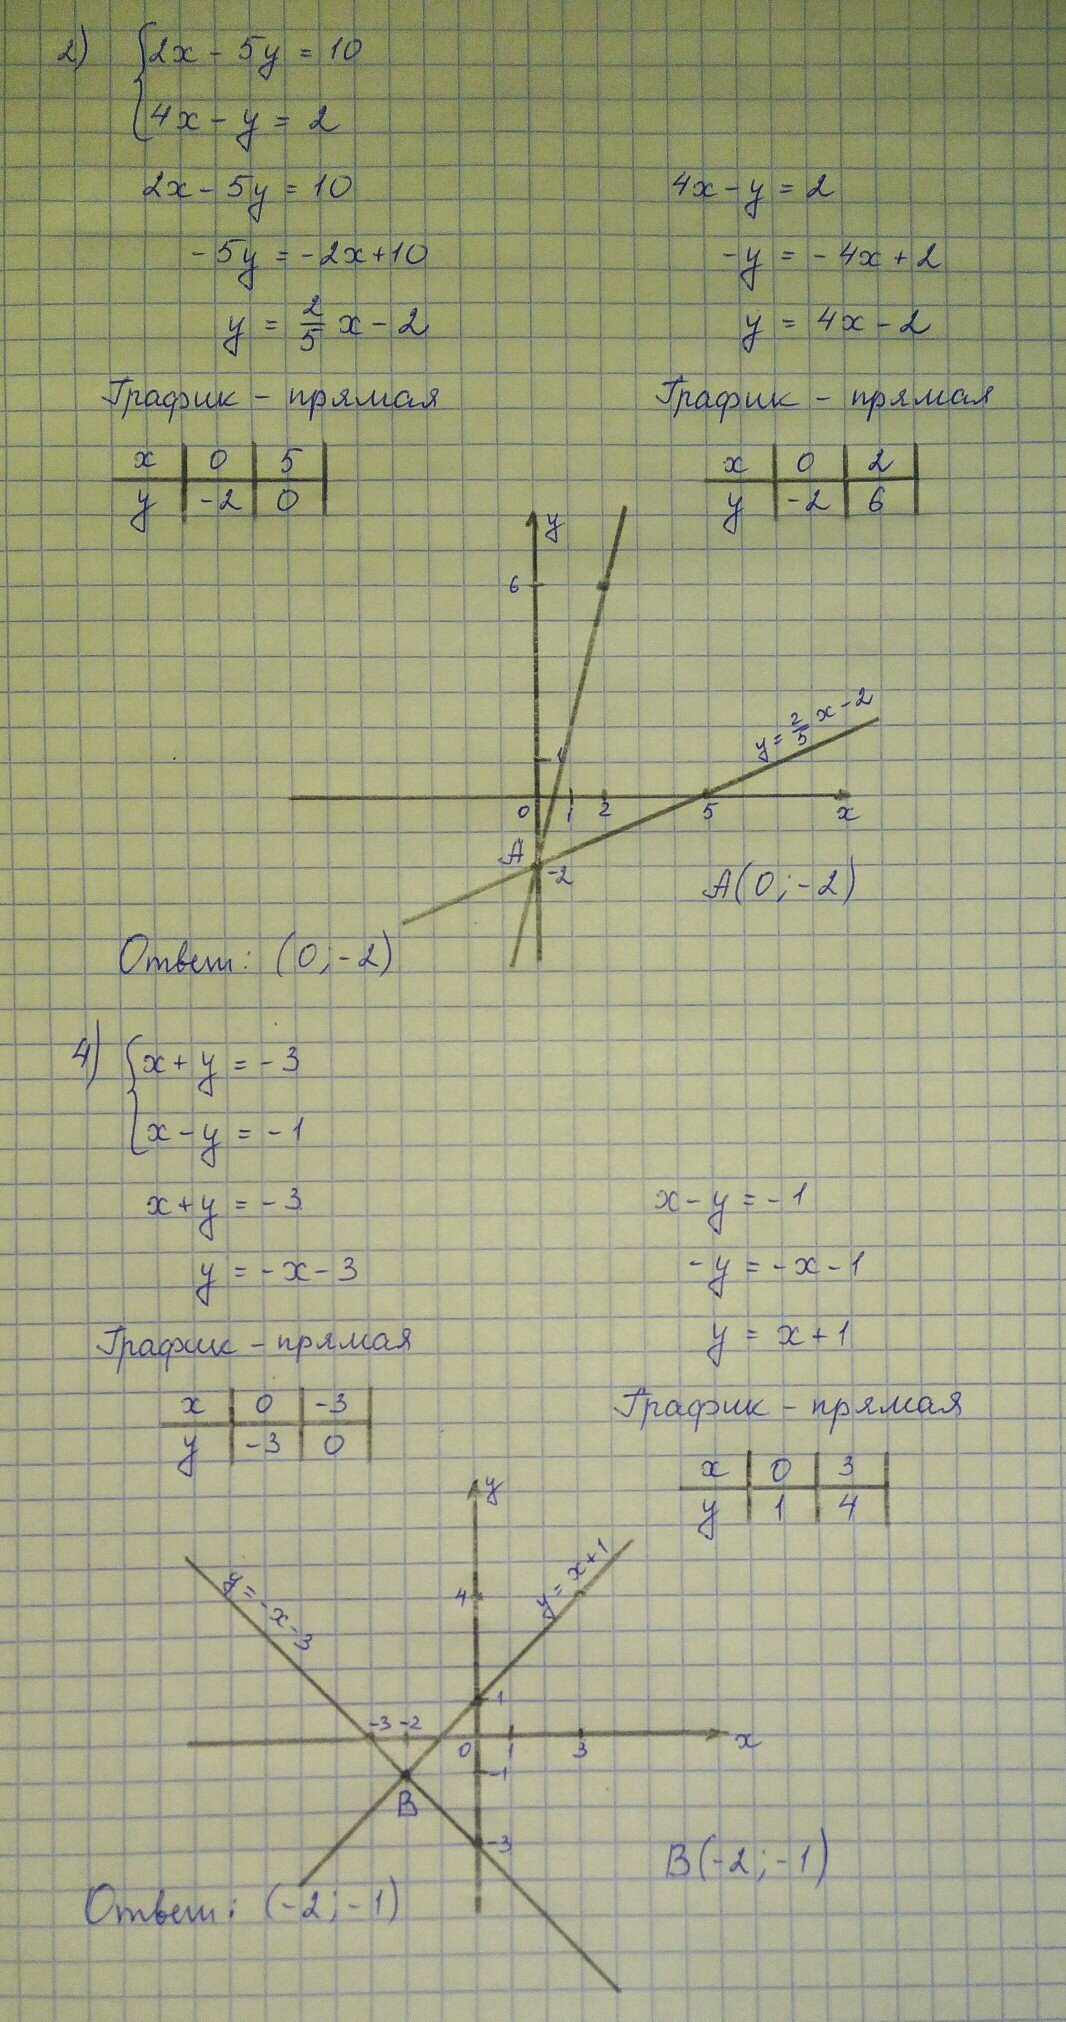 2) {2x - 5y = 10
4x - y = 2
2x - 5y = 10
-5y = -2x + 10
y = 2/5 x - 2
График - прямая
x 0 5
y -2 0
4x - y = 2
-y = -4x + 2
y = 4x - 2
График - прямая
x 0 2
y -2 6
y
6
y = 2/5 x - 2
1
0 1 2 5 x
A
-2
A(0; -2)
Ответ: (0; -2)
4) {x + y = -3
x - y = -1
x + y = -3
y = -x - 3
График - прямая
x 0 -3
y -3 0
x - y = -1
-y = -x - 1
y = x + 1
График - прямая
x 0 3
y 1 4
y
y = -x - 3
4
y = x + 1
1
-3 -2
0 1 3 x
-1
B
-3
B(-2; -1)
Ответ: (-2; -1)